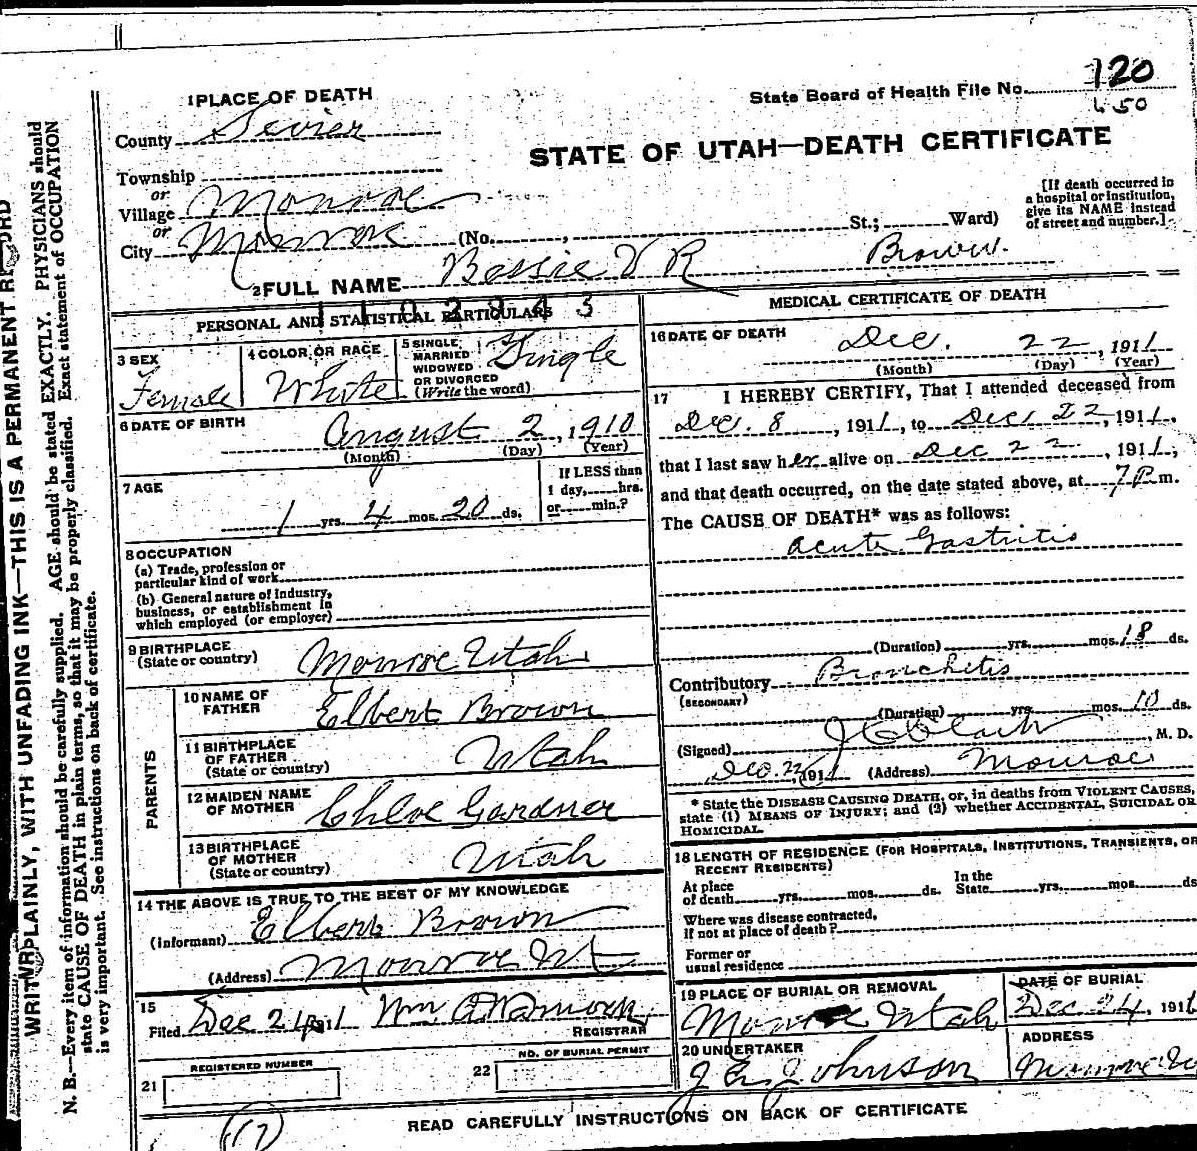 1 PLACE OF DEATH
State Board of Health File No. 120
450
County Sevier
STATE OF UTAH—DEATH CERTIFICATE
Township
or
Village Monroe
or
City Monroe (No. , St.; Ward)
[If death occurred in
a hospital or institution,
give its NAME instead
of street and number.]
2 FULL NAME Bessie V R Brown.
PERSONAL AND STATISTICAL PARTICULARS
3 SEX
Female
4 COLOR OR RACE
White
5 SINGLE,
MARRIED
WIDOWED
OR DIVORCED
(Write the word)
Single
6 DATE OF BIRTH
August 2, 1910
(Month) (Day) (Year)
7 AGE
1 yrs. 4 mos. 20 ds.
If LESS than
1 day, hrs.
or min.?
8 OCCUPATION
(a) Trade, profession or
particular kind of work
(b) General nature of industry,
business, or establishment in
which employed (or employer)
9 BIRTHPLACE
(State or country)
Monroe Utah
PARENTS
10 NAME OF
FATHER
Elbert Brown
11 BIRTHPLACE
OF FATHER
(State or country)
Utah
12 MAIDEN NAME
OF MOTHER
Chloe Gardner
13 BIRTHPLACE
OF MOTHER
(State or country)
Utah
14 THE ABOVE IS TRUE TO THE BEST OF MY KNOWLEDGE
(Informant) Elbert Brown
(Address) Monroe Ut
15
Filed Dec 24 1911 Wm
REGISTRAR
REGISTERED NUMBER
21
NO. OF BURIAL PERMIT
22
MEDICAL CERTIFICATE OF DEATH
16 DATE OF DEATH
Dec. 22, 1911
(Month) (Day) (Year)
17 I HEREBY CERTIFY, That I attended deceased from
Dec. 8, 1911, to Dec. 22, 1911,
that I last saw her alive on Dec 22, 1911,
and that death occurred, on the date stated above, at 7 P m.
The CAUSE OF DEATH* was as follows:
acute Gastritis
(Duration) yrs. mos. 18 ds.
Contributory Bronchitis
(SECONDARY)
(Duration) yrs. mos. 10 ds.
(Signed) J C Clark, M. D.
Dec. 22, 1911 (Address) Monroe
* State the DISEASE CAUSING DEATH, or, in deaths from VIOLENT CAUSES,
state (1) MEANS OF INJURY; and (2) whether ACCIDENTAL, SUICIDAL OR
HOMICIDAL.
18 LENGTH OF RESIDENCE (FOR HOSPITALS, INSTITUTIONS, TRANSIENTS, OR
RECENT RESIDENTS)
At place
of death yrs. mos. ds.
In the
State yrs. mos. ds
Where was disease contracted,
if not at place of death?
Former or
usual residence
19 PLACE OF BURIAL OR REMOVAL
Monroe Utah
DATE OF BURIAL
Dec 24, 1911
20 UNDERTAKER
J E Johnson
ADDRESS
Monroe
READ CAREFULLY INSTRUCTIONS ON BACK OF CERTIFICATE
(17)
WRITE PLAINLY, WITH UNFADING INK—THIS IS A PERMANENT RECORD
N. B.—Every item of information should be carefully supplied. AGE should be stated EXACTLY. PHYSICIANS should
state CAUSE OF DEATH in plain terms, so that it may be properly classified. Exact statement of OCCUPATION
is very important. See instructions on back of certificate.